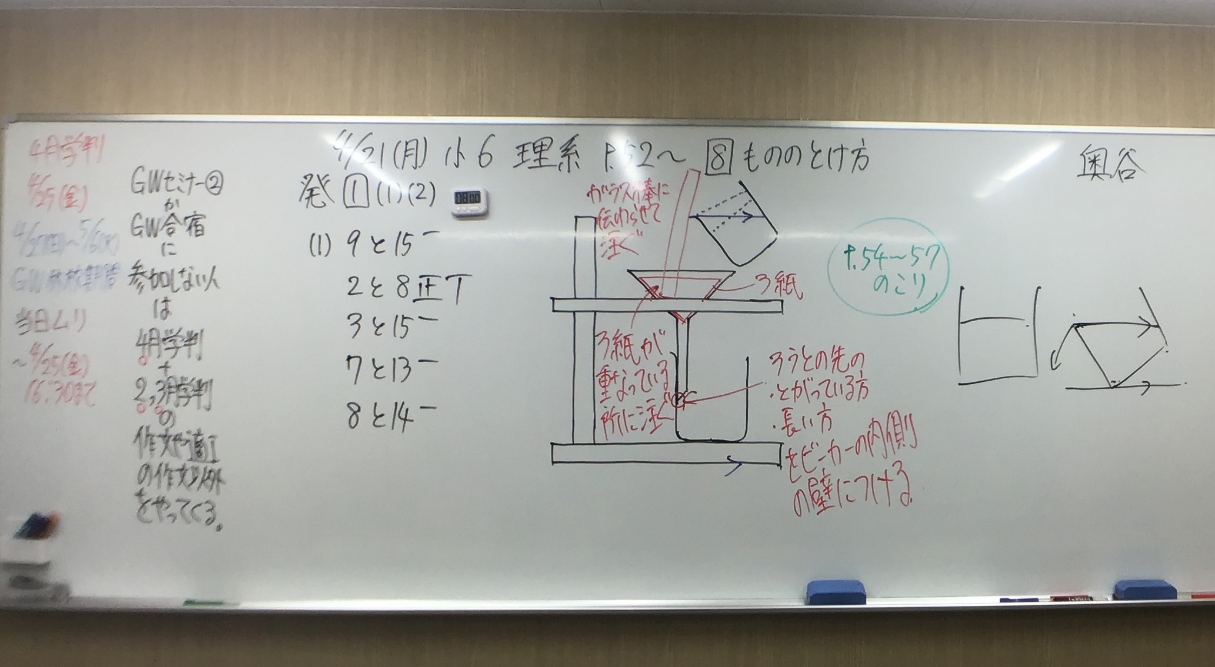 4月学判
4/25(金)
4/27(日)〜5/6(火)
GW
当日ムリ
〜4/25(金)
16:30まで
GWセミナー②
か
GW合宿
に
参加しない人
は
4月学判
+
2,3月学判
の
作文や適Ⅰ
の作文以外
をやってくる。
4/21(月) 小6 理系 P.52〜 8 もののとけ方
発 1 (1)(2)
(1) 9と15 一
2と8 正丅
3と15 一
7と13 一
8と14 一
ガラス棒に
伝わらせて
注ぐ
ろ紙
ろ紙が
重なっている
所に注ぐ
ろうとの先の
・とがっている方
・長い方
をビーカーの内側
の壁につける
P.54〜57
のこり
奥谷